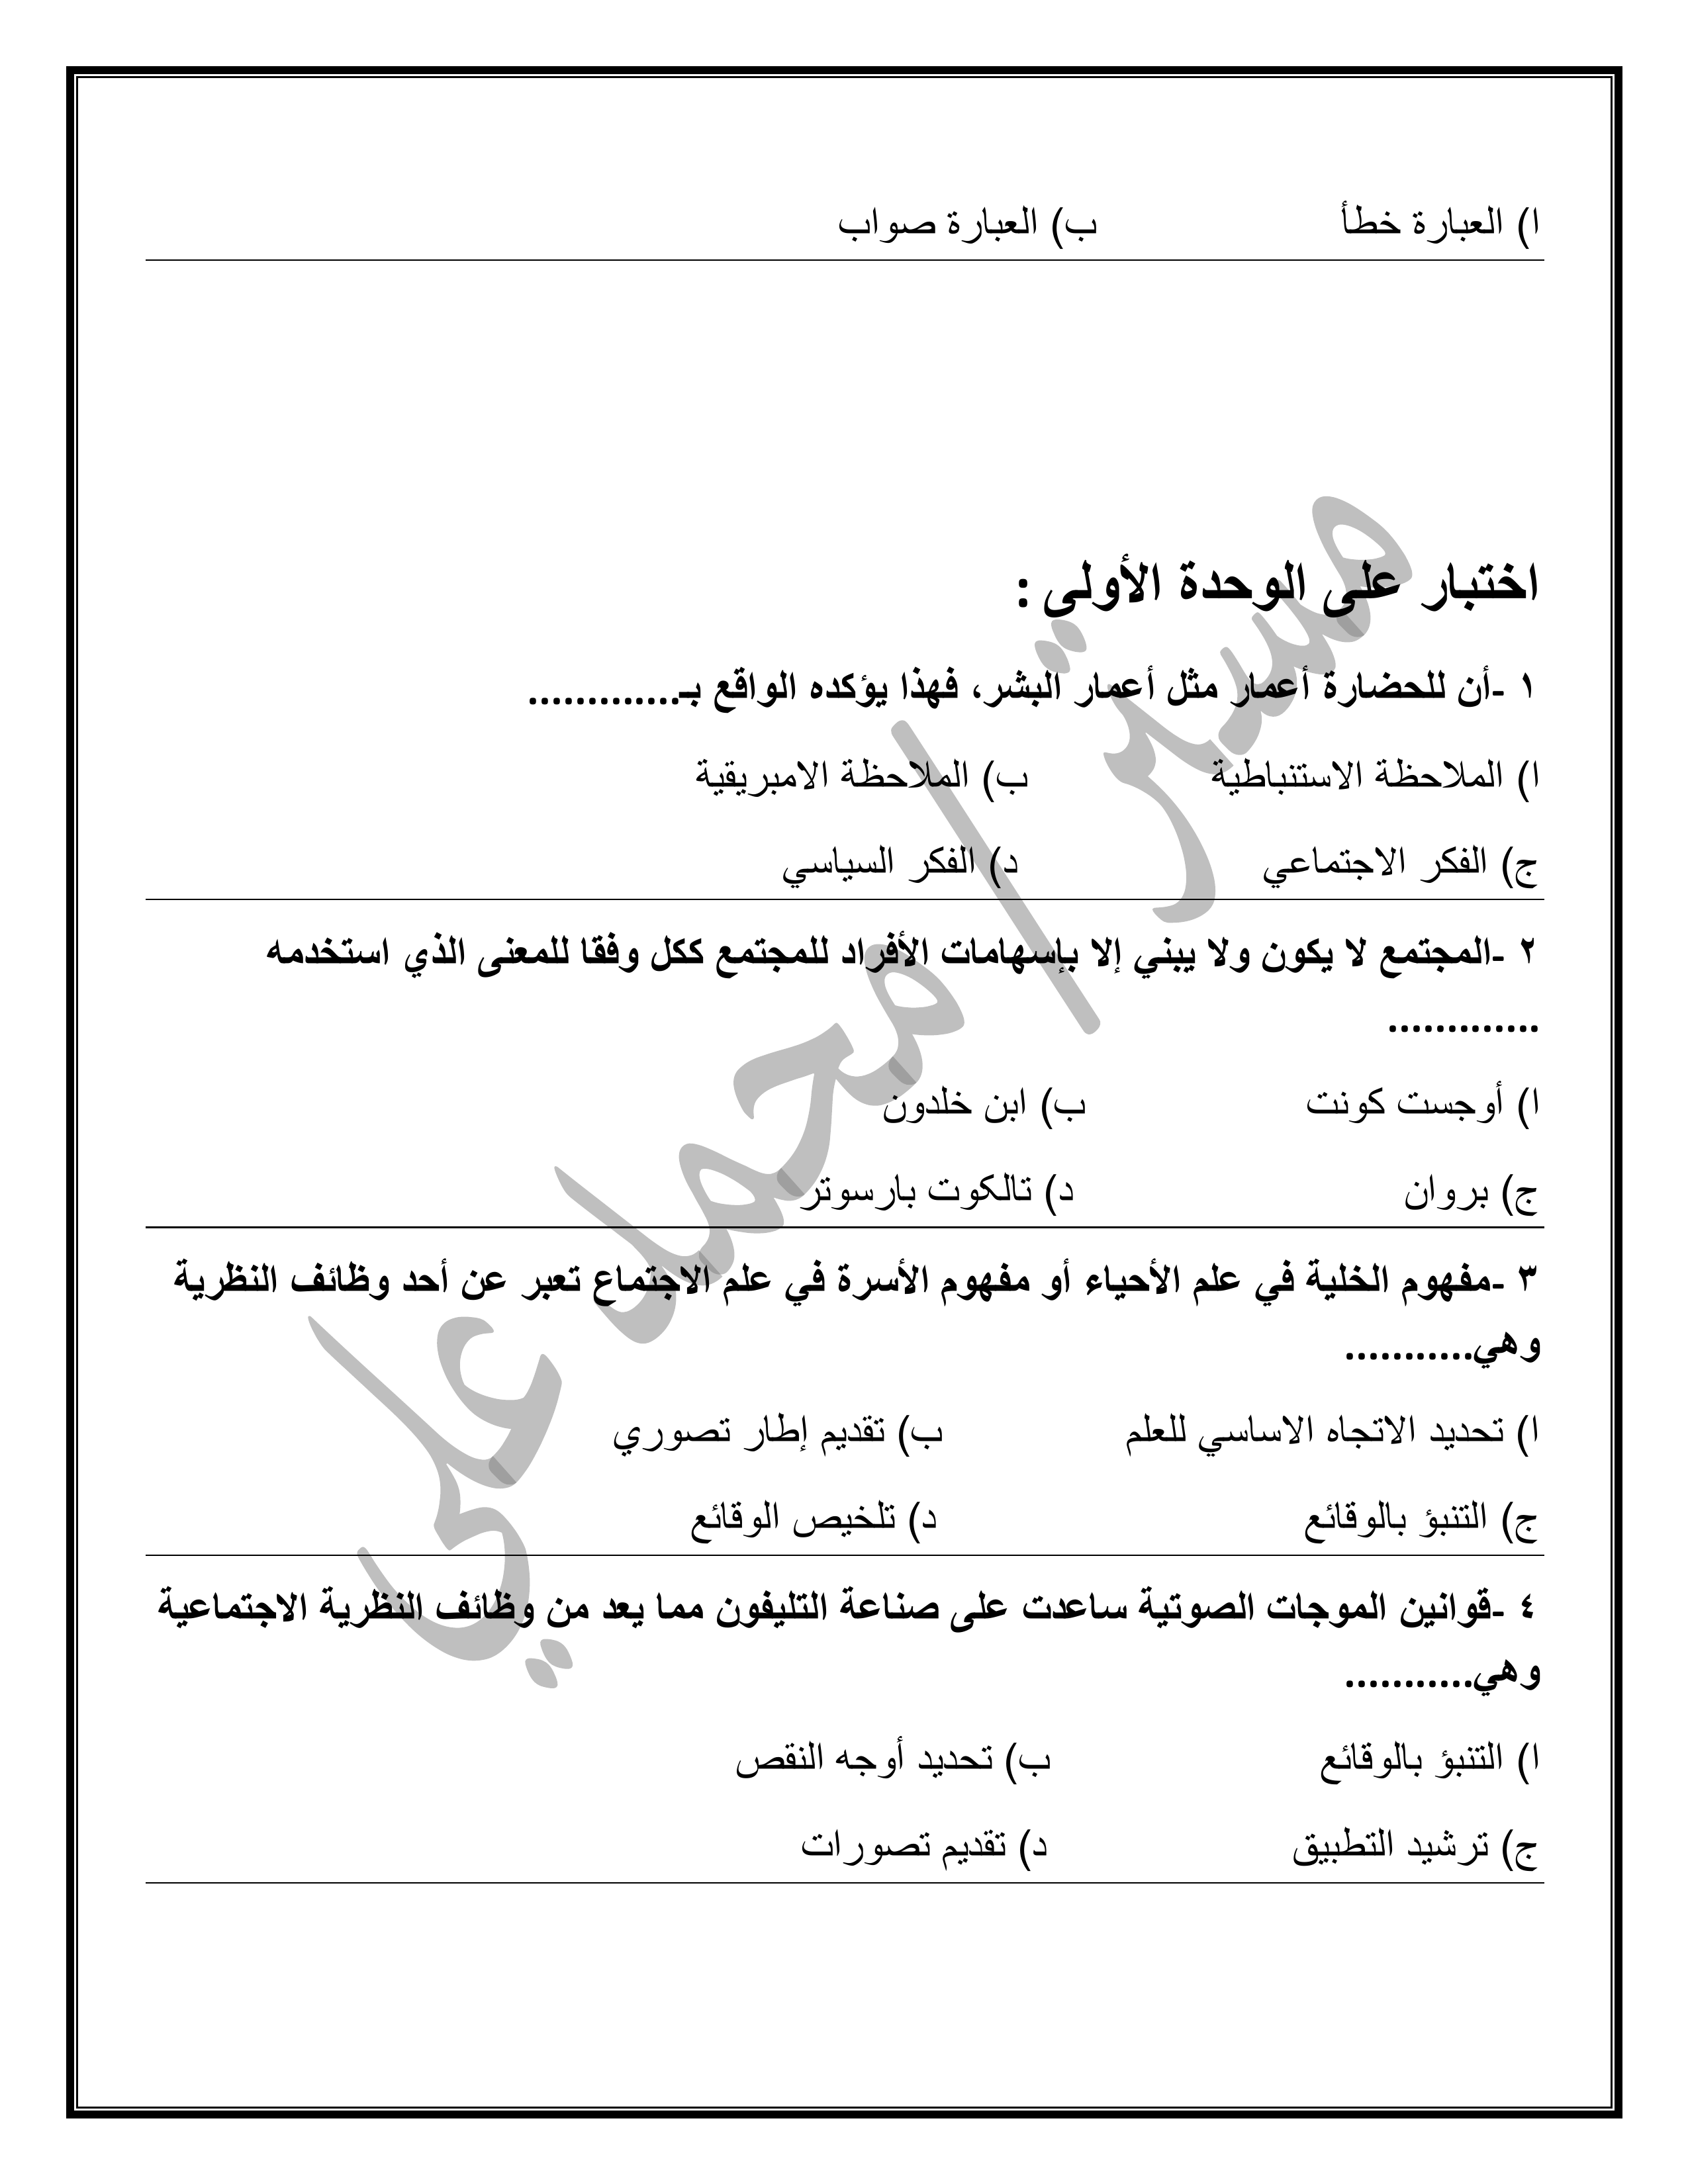 ا) العبارة خطأ ب) العبارة صواب
اختبار على الوحدة الأولى :
١ -أن للحضارة أعمار مثل أعمار البشر، فهذا يؤكده الواقع بـ.............
ا) الملاحظة الاستنباطية ب) الملاحظة الامبريقية
ج) الفكر الاجتماعي د) الفكر السياسي
٢ -المجتمع لا يكون ولا يبني إلا بإسهامات الأفراد للمجتمع ككل وفقا للمعنى الذي استخدمه
.............
ا) أوجست كونت ب) ابن خلدون
ج) بروان د) تالكوت بارسوتر
٣ -مفهوم الخلية في علم الأحياء أو مفهوم الأسرة في علم الاجتماع تعبر عن أحد وظائف النظرية
وهي...........
ا) تحديد الاتجاه الاساسي للعلم ب) تقديم إطار تصوري
ج) التنبؤ بالوقائع د) تلخيص الوقائع
٤ -قوانين الموجات الصوتية ساعدت على صناعة التليفون مما يعد من وظائف النظرية الاجتماعية
وهي...........
ا) التنبؤ بالوقائع ب) تحديد أوجه النقص
ج) ترشيد التطبيق د) تقديم تصورات
مستر/محمد علي